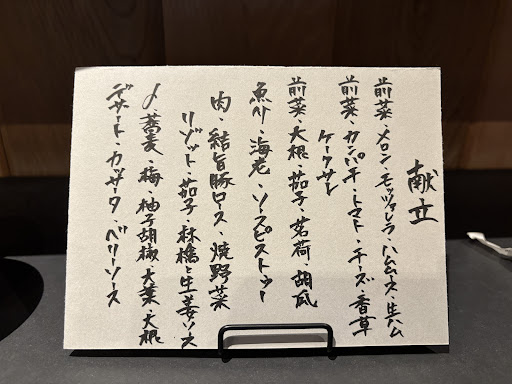 献立
前菜・メロン・モッツァレラ・ハムムース・生ハム
前菜・カンパチ・トマト・チーズ・香草
ケークサレ
前菜・大根・茄子・茗荷・胡瓜
魚介・海老・ソースピストゥー
肉・結旨豚ロース・焼野菜
リゾット・茄子・林檎と生姜ソース
〆・蕎麦・梅・柚子胡椒・大葉・大根
デザート・カッサータ・ベリーソース